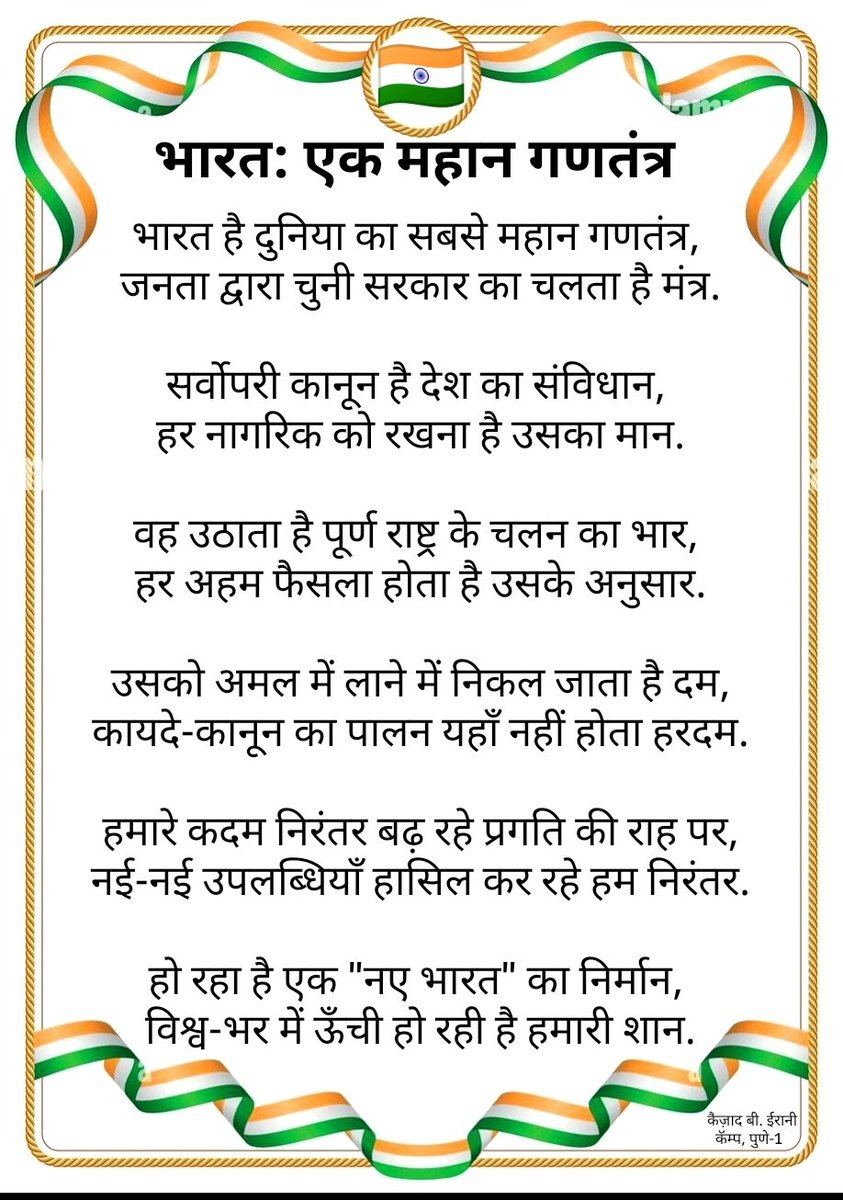 भारत: एक महान गणतंत्र
भारत है दुनिया का सबसे महान गणतंत्र,
जनता द्वारा चुनी सरकार का चलता है मंत्र.
सर्वोपरी कानून है देश का संविधान,
हर नागरिक को रखना है उसका मान.
वह उठाता है पूर्ण राष्ट्र के चलन का भार,
हर अहम फैसला होता है उसके अनुसार.
उसको अमल में लाने में निकल जाता है दम,
कायदे-कानून का पालन यहाँ नहीं होता हरदम.
हमारे कदम निरंतर बढ़ रहे प्रगति की राह पर,
नई-नई उपलब्धियाँ हासिल कर रहे हम निरंतर.
हो रहा है एक "नए भारत" का निर्मान,
विश्व-भर में ऊँची हो रही है हमारी शान.
कैज़ाद बी. ईरानी
कॅम्प, पुणे-1